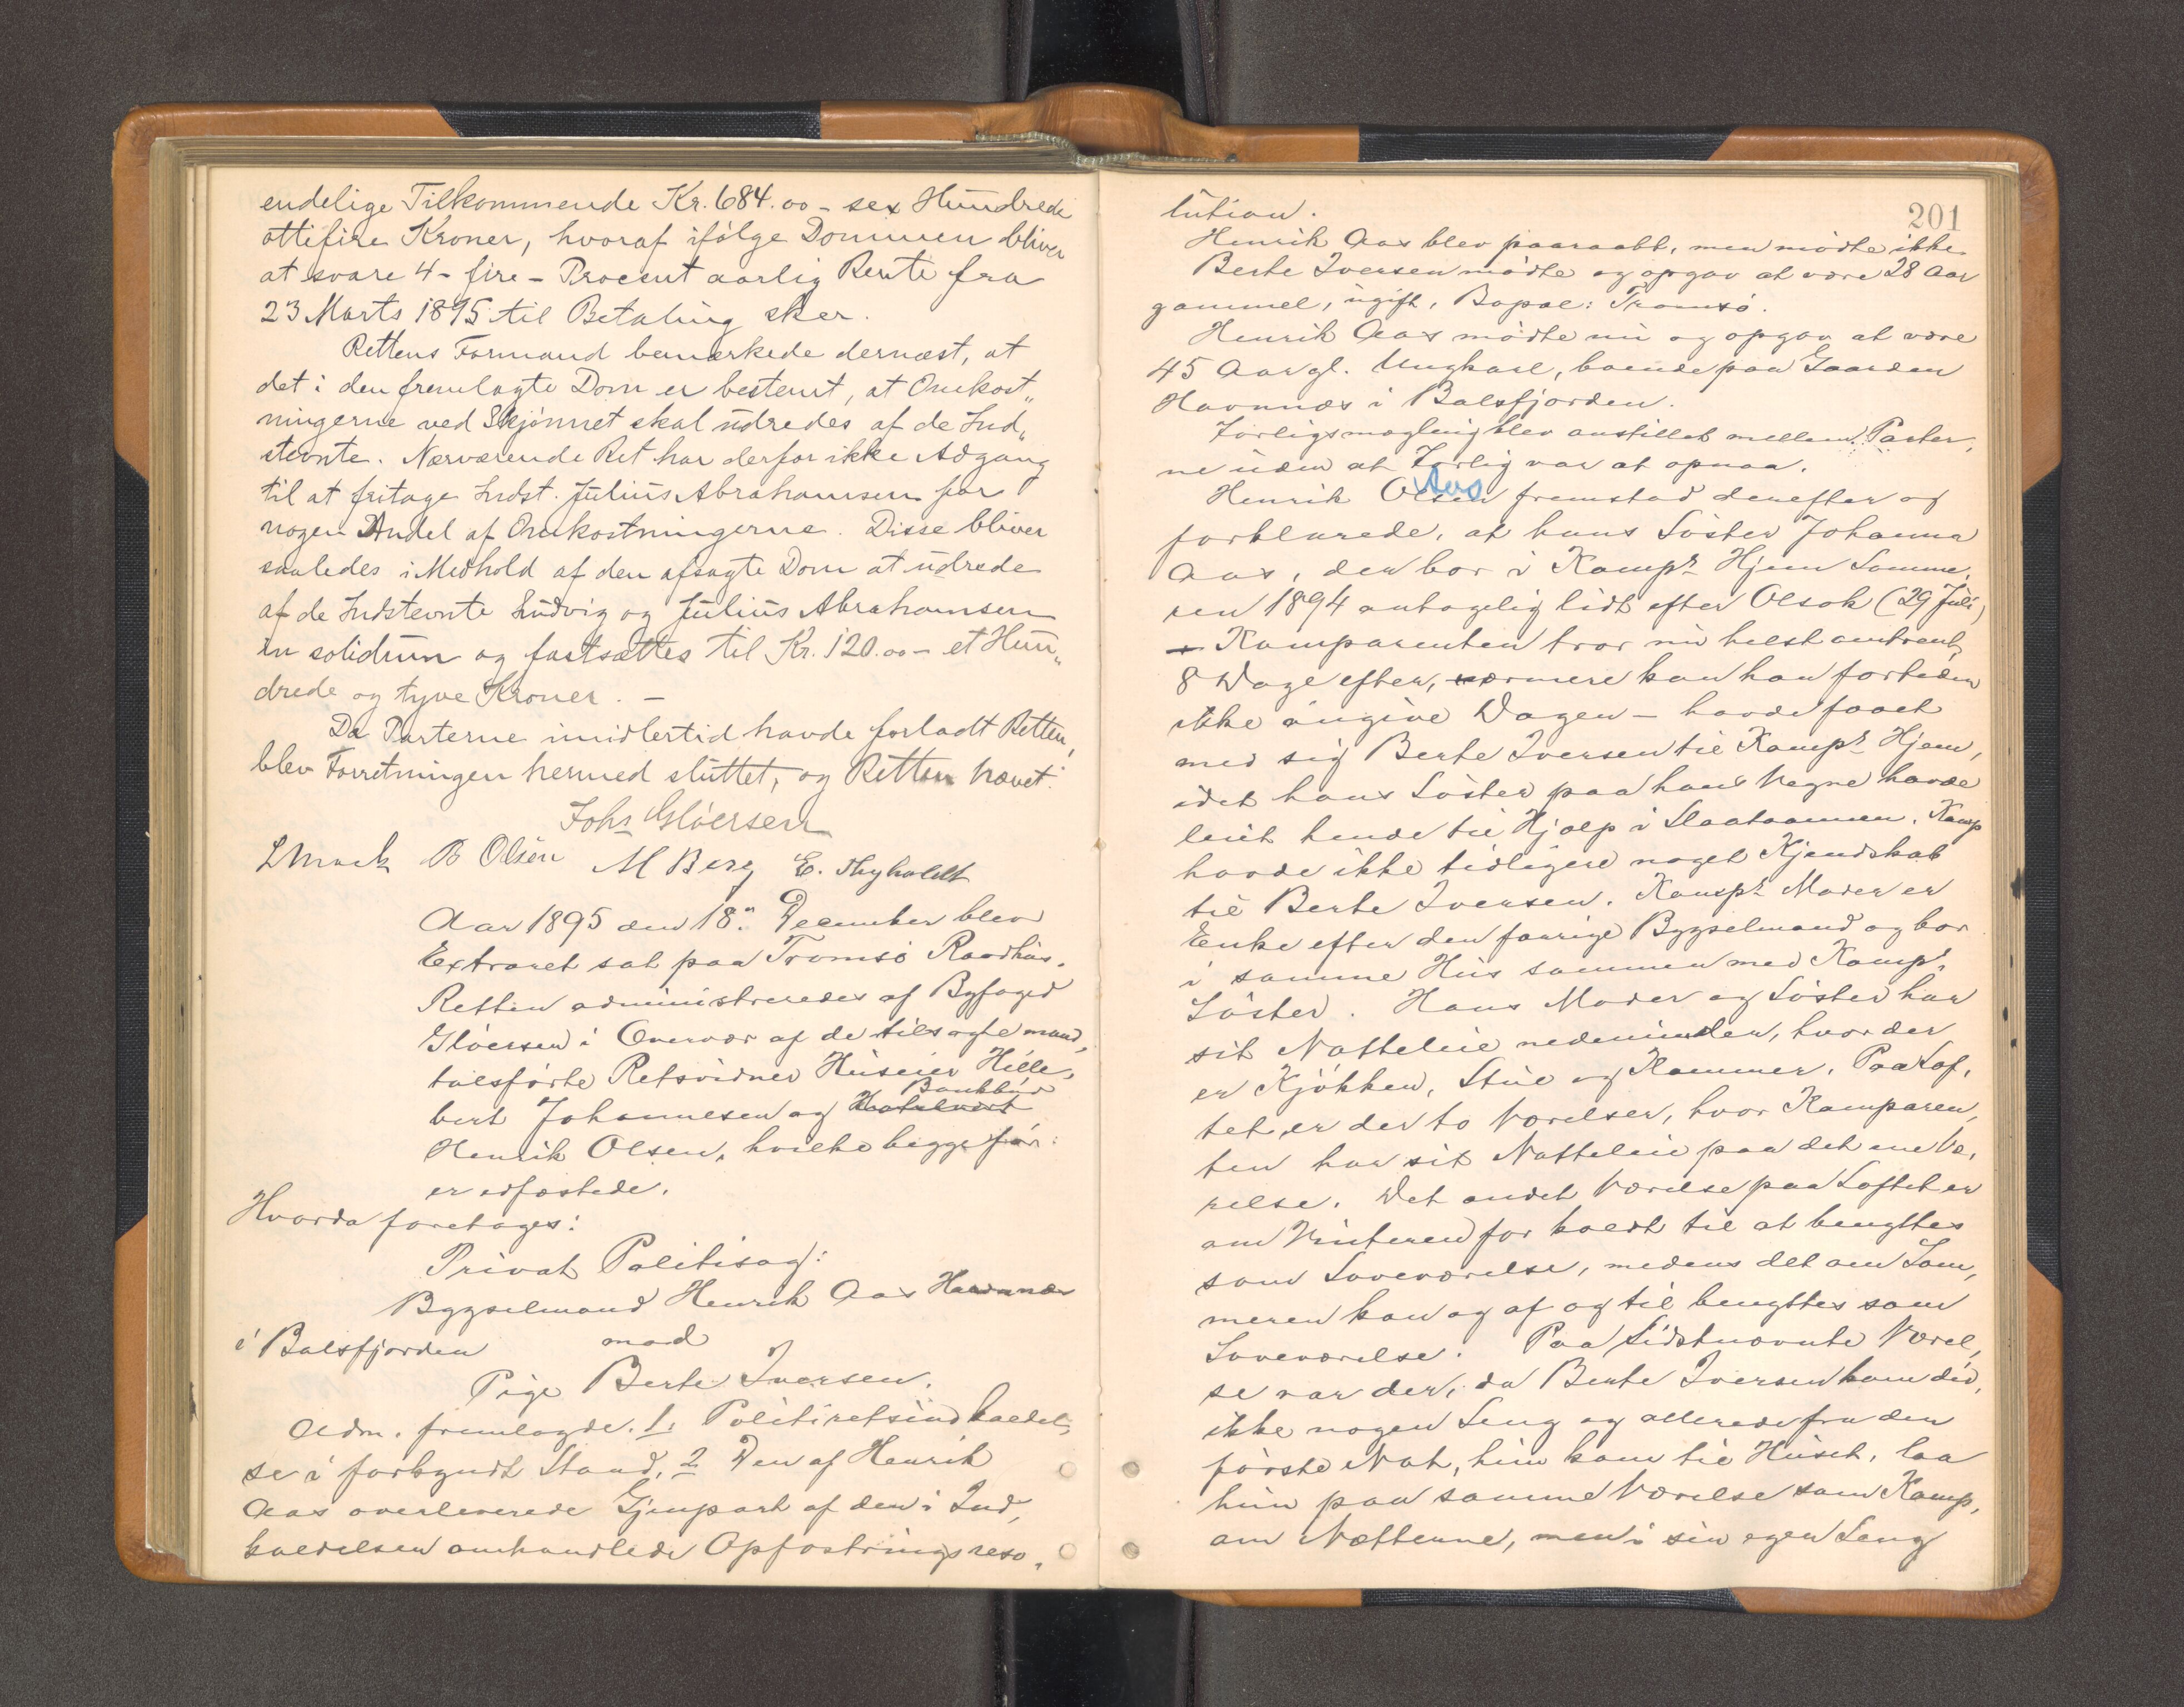 endelige Tilkommende Kr. 684.00 - sex Hundrede
ottifire Kroner, hvoraf ifølge Dommen bliver
at svare 4 - fire - Procent aarlig Rente fra
23 Marts 1895 til Betaling sker.
Rettens Formand bemærkede dernæst, at
det i den fremlagte Dom er bestemt, at Omkost„
ningerne ved Skjønnet skal udredes af de Ind„
stevnte. Nærværende Ret har derfor ikke Adgang
til at fritage Indst. Julius Abrahamsen for
nogen Andel af Omkostningerne. Disse bliver
saaledes i Medhold af den afsagte Dom at udrede
af de Indstevnte Ludvig og Julius Abrahamsen
in solidum og fastsættes til Kr. 120.00 - et Hun„
drede og tyve Kroner. -
Da Parterne imidlertid havde forladt Retten,
blev Forretningen hermed sluttet, og Retten hævet.
Johs Gløersen
L Mack B Olsen M Berg E. Thyholdt
Aar 1895 den 18de December blev
Extraret sat paa Tromsö Raadhus.
Retten administreredes af Byfoged
Gløersen i Overvær af de tilsagte mand,
talsførte Retsvidner Huseier Hille,
bert Johannesen og Bankbud
Henrik Olsen, hvilke begge før
er edfæstede.
Hvorda foretoges:
Privat Politisag:
Bygselmand Henrik Aas Havnnæs
i Balsfjorden mod
Pige Berte Iversen.
Adm. fremlagde. 1. Politiretsindkaldel,
se i forkyndt Stand, 2 Den af Henrik
Aas overleverede Gjenpart af den i Ind,
kaldelsen omhandlede Opfostringsreso,
201
lution.
Henrik Aas blev paaraabt, men mødte ikke
Berte Iversen mødte og opgav at være 28 Aar
gammel, ugift, Bopæl: Tromsö.
Henrik Aas mødte nu og opgav at være
45 Aar gl. Ungkarl, boende paa Gaarden
Havnnæs i Balsfjorden.
Forligsmægling blev anstillet mellem Parter,
ne uden at Forlig var at opnaa.
Henrik Olsen Aas fremstod derefter og
forklarede, at hans Søster Johanna
Aas, der bor i Kompts Hjem Somme,
ren 1894 antagelig lidt efter Olsok (29 Juli)
- Komparenten tror nu helst omtrent
8 Dage efter, nærmere kan han fortiden
ikke angive Dagen - havde faaet
med sig Berte Iversen til Kompts Hjem,
idet hans Søster paa hans Vegne havde
leiet hende til Hjælp i Slaataannen. Komp
havde ikke tidligere noget Kjendskab
til Berte Iversen. Kompts Moder er
Enke efter den forrige Bygselmand og bor
i samme Hus sammen med Kompts
Søster. Hans Moder og Søster har
sit Natteleie nedenunder, hvor der
er Kjøkken, Stue og Kammer. Paa Lof,
tet er der to Værelser, hvor Komparen,
ten har sit Natteleie paa det ene Væ,
relse. Det andet Værelse paa Loftet er
om Vinteren for koldt til at benyttes
som Soveværelse, medens det om Som,
meren kan og af og til benyttes som
Soveværelse. Paa sidstnævnte Værel,
se var der, da Berte Iversen kom did,
ikke nogen Seng og allerede fra den
første Nat, hun kom til Huset, laa
hun paa samme Værelse som Komp,
om Nætterne, men i sin egen Seng